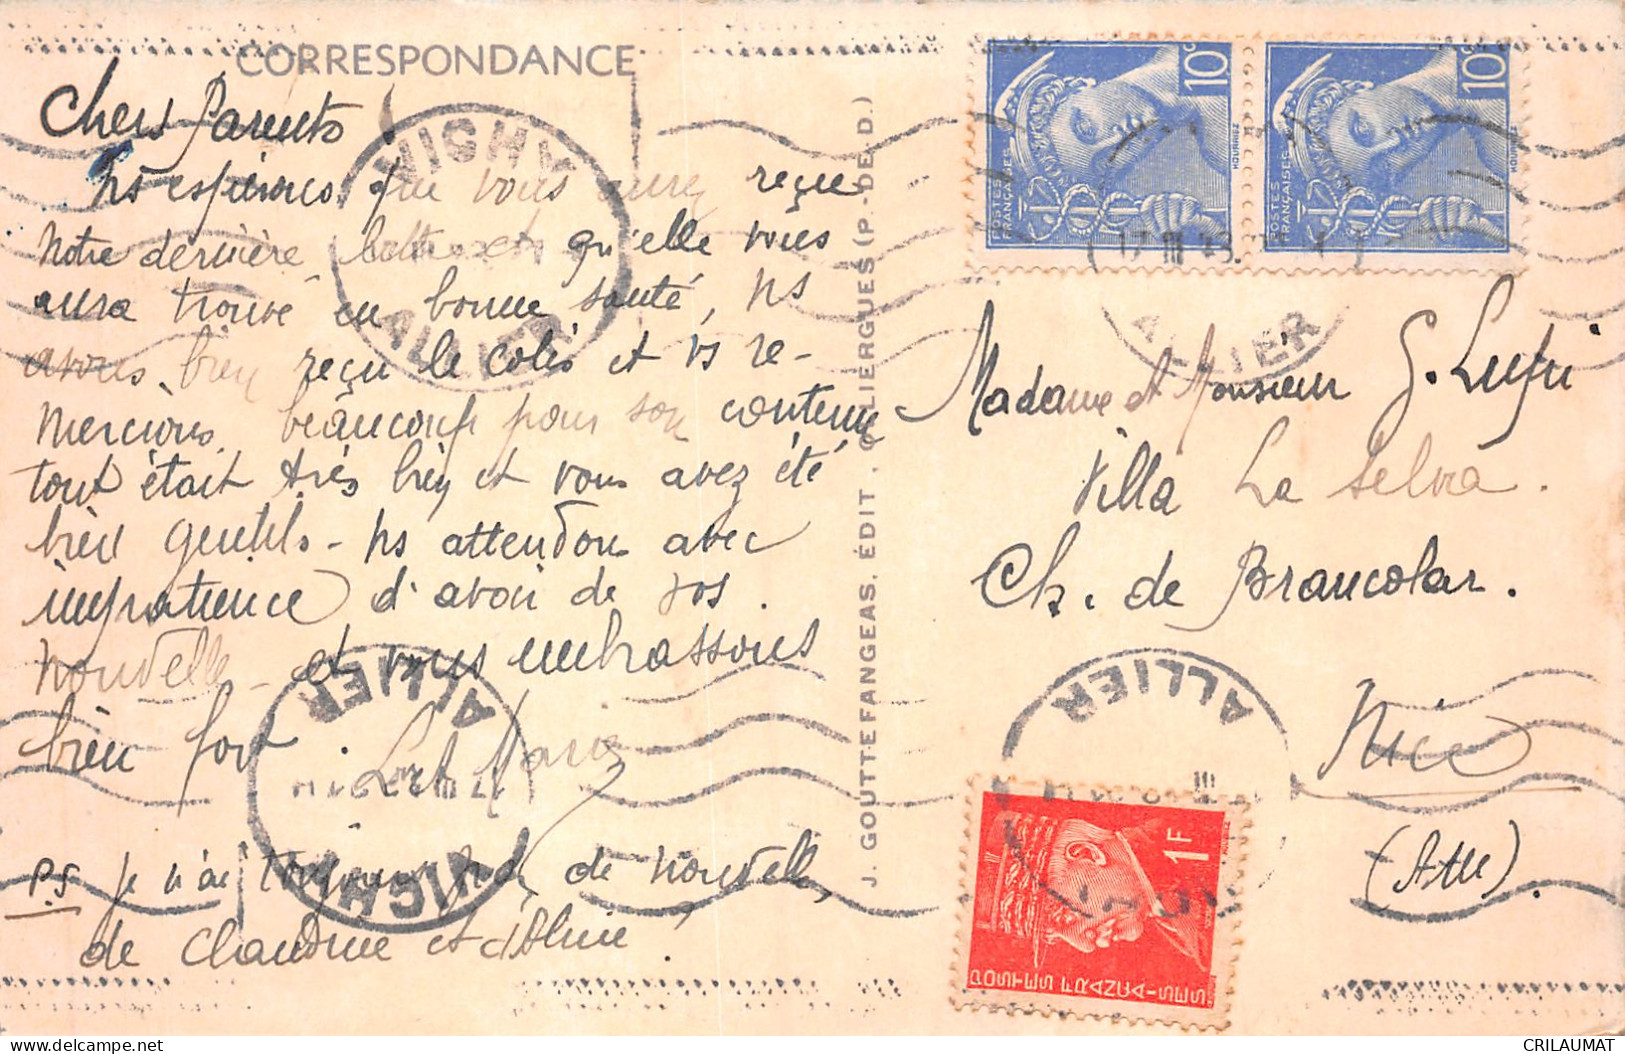 CORRESPONDANCE
Chers Parents
Ns espérons que vous aurez reçue
notre dernière lettre et qu'elle vous
aura trouvé en bonne santé, ns
avons bien reçu le colis et vs re-
mercions beaucoup pour son contenu
tout était très bien et vous avez été
bien gentils - ns attendons avec
impatience d'avoir de vos
nouvelle - et vous embrassons
bien fort
Marie
PS je n'ai toujours pas de nouvelle,
de Claudine et d'Aline
J. GOUTTEFANGEAS, ÉDIT. OLLIERGUES (P.-DE-D.)
10c
POSTES FRANÇAISES
HOURRIEZ
10c
POSTES FRANÇAISES
HOURRIEZ
Madame et Monsieur G.
Villa La Selva.
Ch. de Brancolar.
Nice
(A M).
1F
POSTES FRANÇAISES
VICHY
ALLIER
VICHY
ALLIER
ALLIER
ALLIER
CRILAUMAT